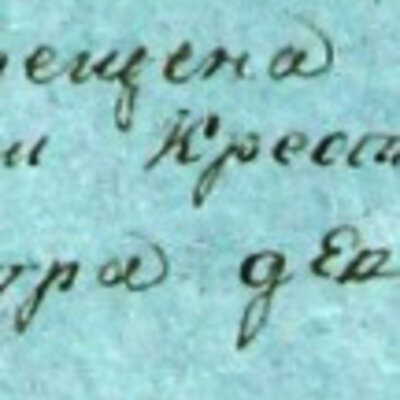 рещена
и Крест
тра дев